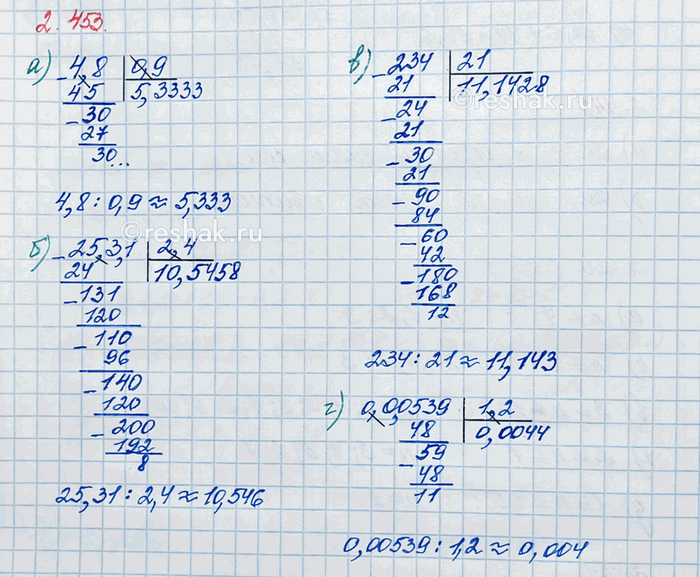 2.453.
а)
- 4,8 | 0,9
45 | 5,3333
- 30
27
30...
4,8 : 0,9 ≈ 5,333
б)
- 25,3,1 | 2,4
24 | 10,5458
- 131
120
- 110
96
- 140
120
- 200
192
8
25,31 : 2,4 ≈ 10,546
в)
- 234 | 21
21 | 11,1428
- 24
21
- 30
21
- 90
84
- 60
42
- 180
168
12
234 : 21 ≈ 11,143
г)
0,00539 | 1,2
48 | 0,0044
- 59
48
11
0,00539 : 1,2 ≈ 0,004
©reshak.ru
©reshak.ru
©reshak.ru